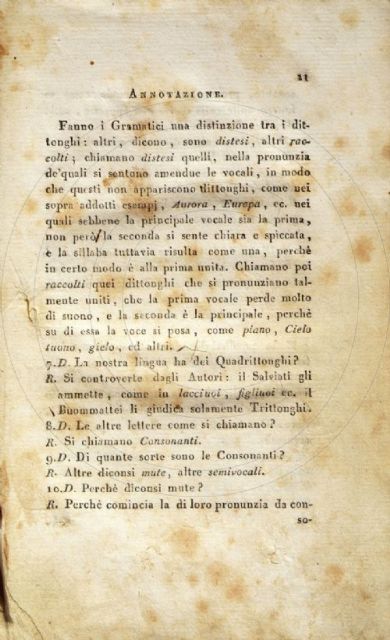 11
ANNOTAZIONE.
Fanno i Gramatici una distinzione tra i dit-
tonghi: altri, dicono, sono distesi, altri rac-
colti; chiamano distesi quelli, nella pronunzia
de'quali si sentono amendue le vocali, in modo
che questi non appariscono dittonghi, come nei
sopra addotti esempj, Aurora, Europa, ec. nei
quali sebbene la principale vocale sia la prima,
non però la seconda si sente chiara e spiccata,
e la sillaba tuttavia risulta come una, perchè
in certo modo è alla prima unita. Chiamano poi
raccolti quei dittonghi che si pronunziano tal-
mente uniti, che la prima vocale perde molto
di suono, e la seconda è la principale, perchè
su di essa la voce si posa, come piano, Cielo
tuono, gielo, ed altri.
7.D. La nostra lingua ha dei Quadrittonghi?
R. Si controverte dagli Autori: il Salviati gli
ammette, come in lacciuoi, figliuoi ec. il
Buommattei li giudica solamente Trittonghi.
8.D. Le altre lettere come si chiamano?
R. Si chiamano Consonanti.
9.D. Di quante sorte sono le Consonanti?
R. Altre diconsi mute, altre semivocali.
10.D. Perchè diconsi mute?
R. Perchè comincia la di loro pronunzia da con-
so-